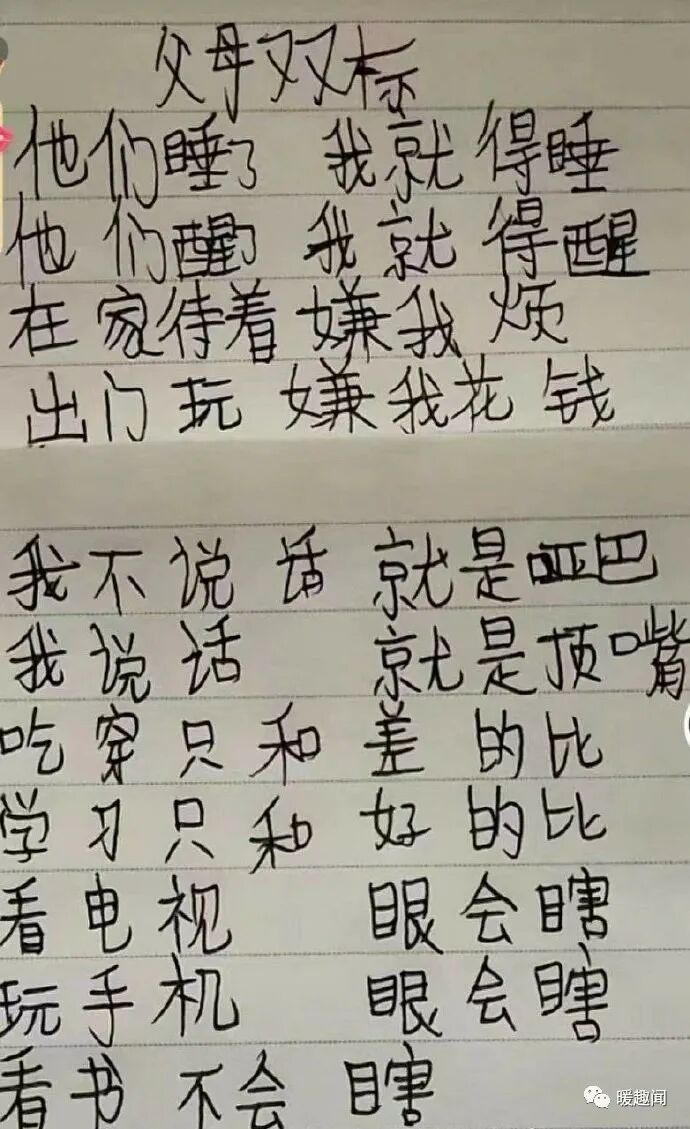 父母双标
他们睡了 我就得睡
他们醒了 我就得醒
在家待着 嫌我烦
出门玩 嫌我花钱
我不说话 就是哑巴
我说话 就是顶嘴
吃穿只和差的比
学习只和好的比
看电视 眼会瞎
玩手机 眼会瞎
看书不会瞎
暖趣闻